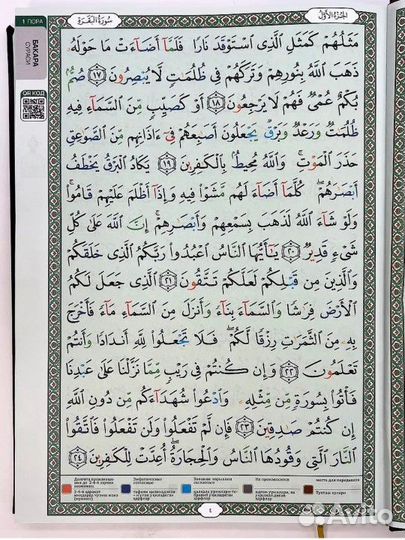 ١ ПОРА
БАКАРА
СУРАСИ
QR КОД
سُورَةُ البَقَرَةِ
الجُزْءُ الأَوَّلُ
مَثَلُهُمْ كَمَثَلِ الَّذِي اسْتَوْقَدَ نَارًا فَلَمَّا أَضَاءَتْ مَا حَوْلَهُ
ذَهَبَ اللَّهُ بِنُورِهِمْ وَتَرَكَهُمْ فِي ظُلُمَتٍ لَا يُبْصِرُونَ ١٧ صُمٌّ
بُكْمٌ عُمْيٌ فَهُمْ لَا يَرْجِعُونَ ١٨ أَوْ كَصَيِّبٍ مِنَ السَّمَاءِ فِيهِ
ظُلُمَتٌ وَرَعْدٌ وَبَرْقٌ يَجْعَلُونَ أَصَبِعَهُمْ فِي ءَاذَانِهِمْ مِنَ الصَّوَعِقِ
حَذَرَ الْمَوْتِ وَاللَّهُ مُحِيطٌ بِالْكَفِرِينَ ١٩ يَكَادُ الْبَرْقُ يَخْطَفُ
أَبْصَرَهُمْ كُلَّمَا أَضَاءَ لَهُمْ مَشَوْا فِيهِ وَإِذَا أَظْلَمَ عَلَيْهِمْ قَامُوا
وَلَوْ شَاءَ اللَّهُ لَذَهَبَ بِسَمْعِهِمْ وَأَبْصَرِهِمْ إِنَّ اللَّهَ عَلَى كُلِّ
شَيْءٍ قَدِيرٌ ٢٠ يَأَيُّهَا النَّاسُ اعْبُدُوا رَبَّكُمُ الَّذِي خَلَقَكُمْ
وَالَّذِينَ مِنْ قَبْلِكُمْ لَعَلَّكُمْ تَتَّقُونَ ٢١ الَّذِي جَعَلَ لَكُمُ
الْأَرْضَ فِرَشًا وَالسَّمَاءَ بِنَاءً وَأَنْزَلَ مِنَ السَّمَاءِ مَاءً فَأَخْرَجَ
بِهِ مِنَ الثَّمَرَتِ رِزْقًا لَكُمْ فَلَا تَجْعَلُوا لِلَّهِ أَنْدَادًا وَأَنْتُمْ
تَعْلَمُونَ ٢٢ وَإِنْ كُنْتُمْ فِي رَيْبٍ مِمَّا نَزَّلْنَا عَلَى عَبْدِنَا
فَأْتُوا بِسُورَةٍ مِنْ مِثْلِهِ وَادْعُوا شُهَدَاءَكُمْ مِنْ دُونِ اللَّهِ
إِنْ كُنْتُمْ صَدِقِينَ ٢٣ فَإِنْ لَمْ تَفْعَلُوا وَلَنْ تَفْعَلُوا فَاتَّقُوا
النَّارَ الَّتِي وَقُودُهَا النَّاسُ وَالْحِجَارَةُ أُعِدَّتْ لِلْكَفِرِينَ ٢٤
٤
Avito